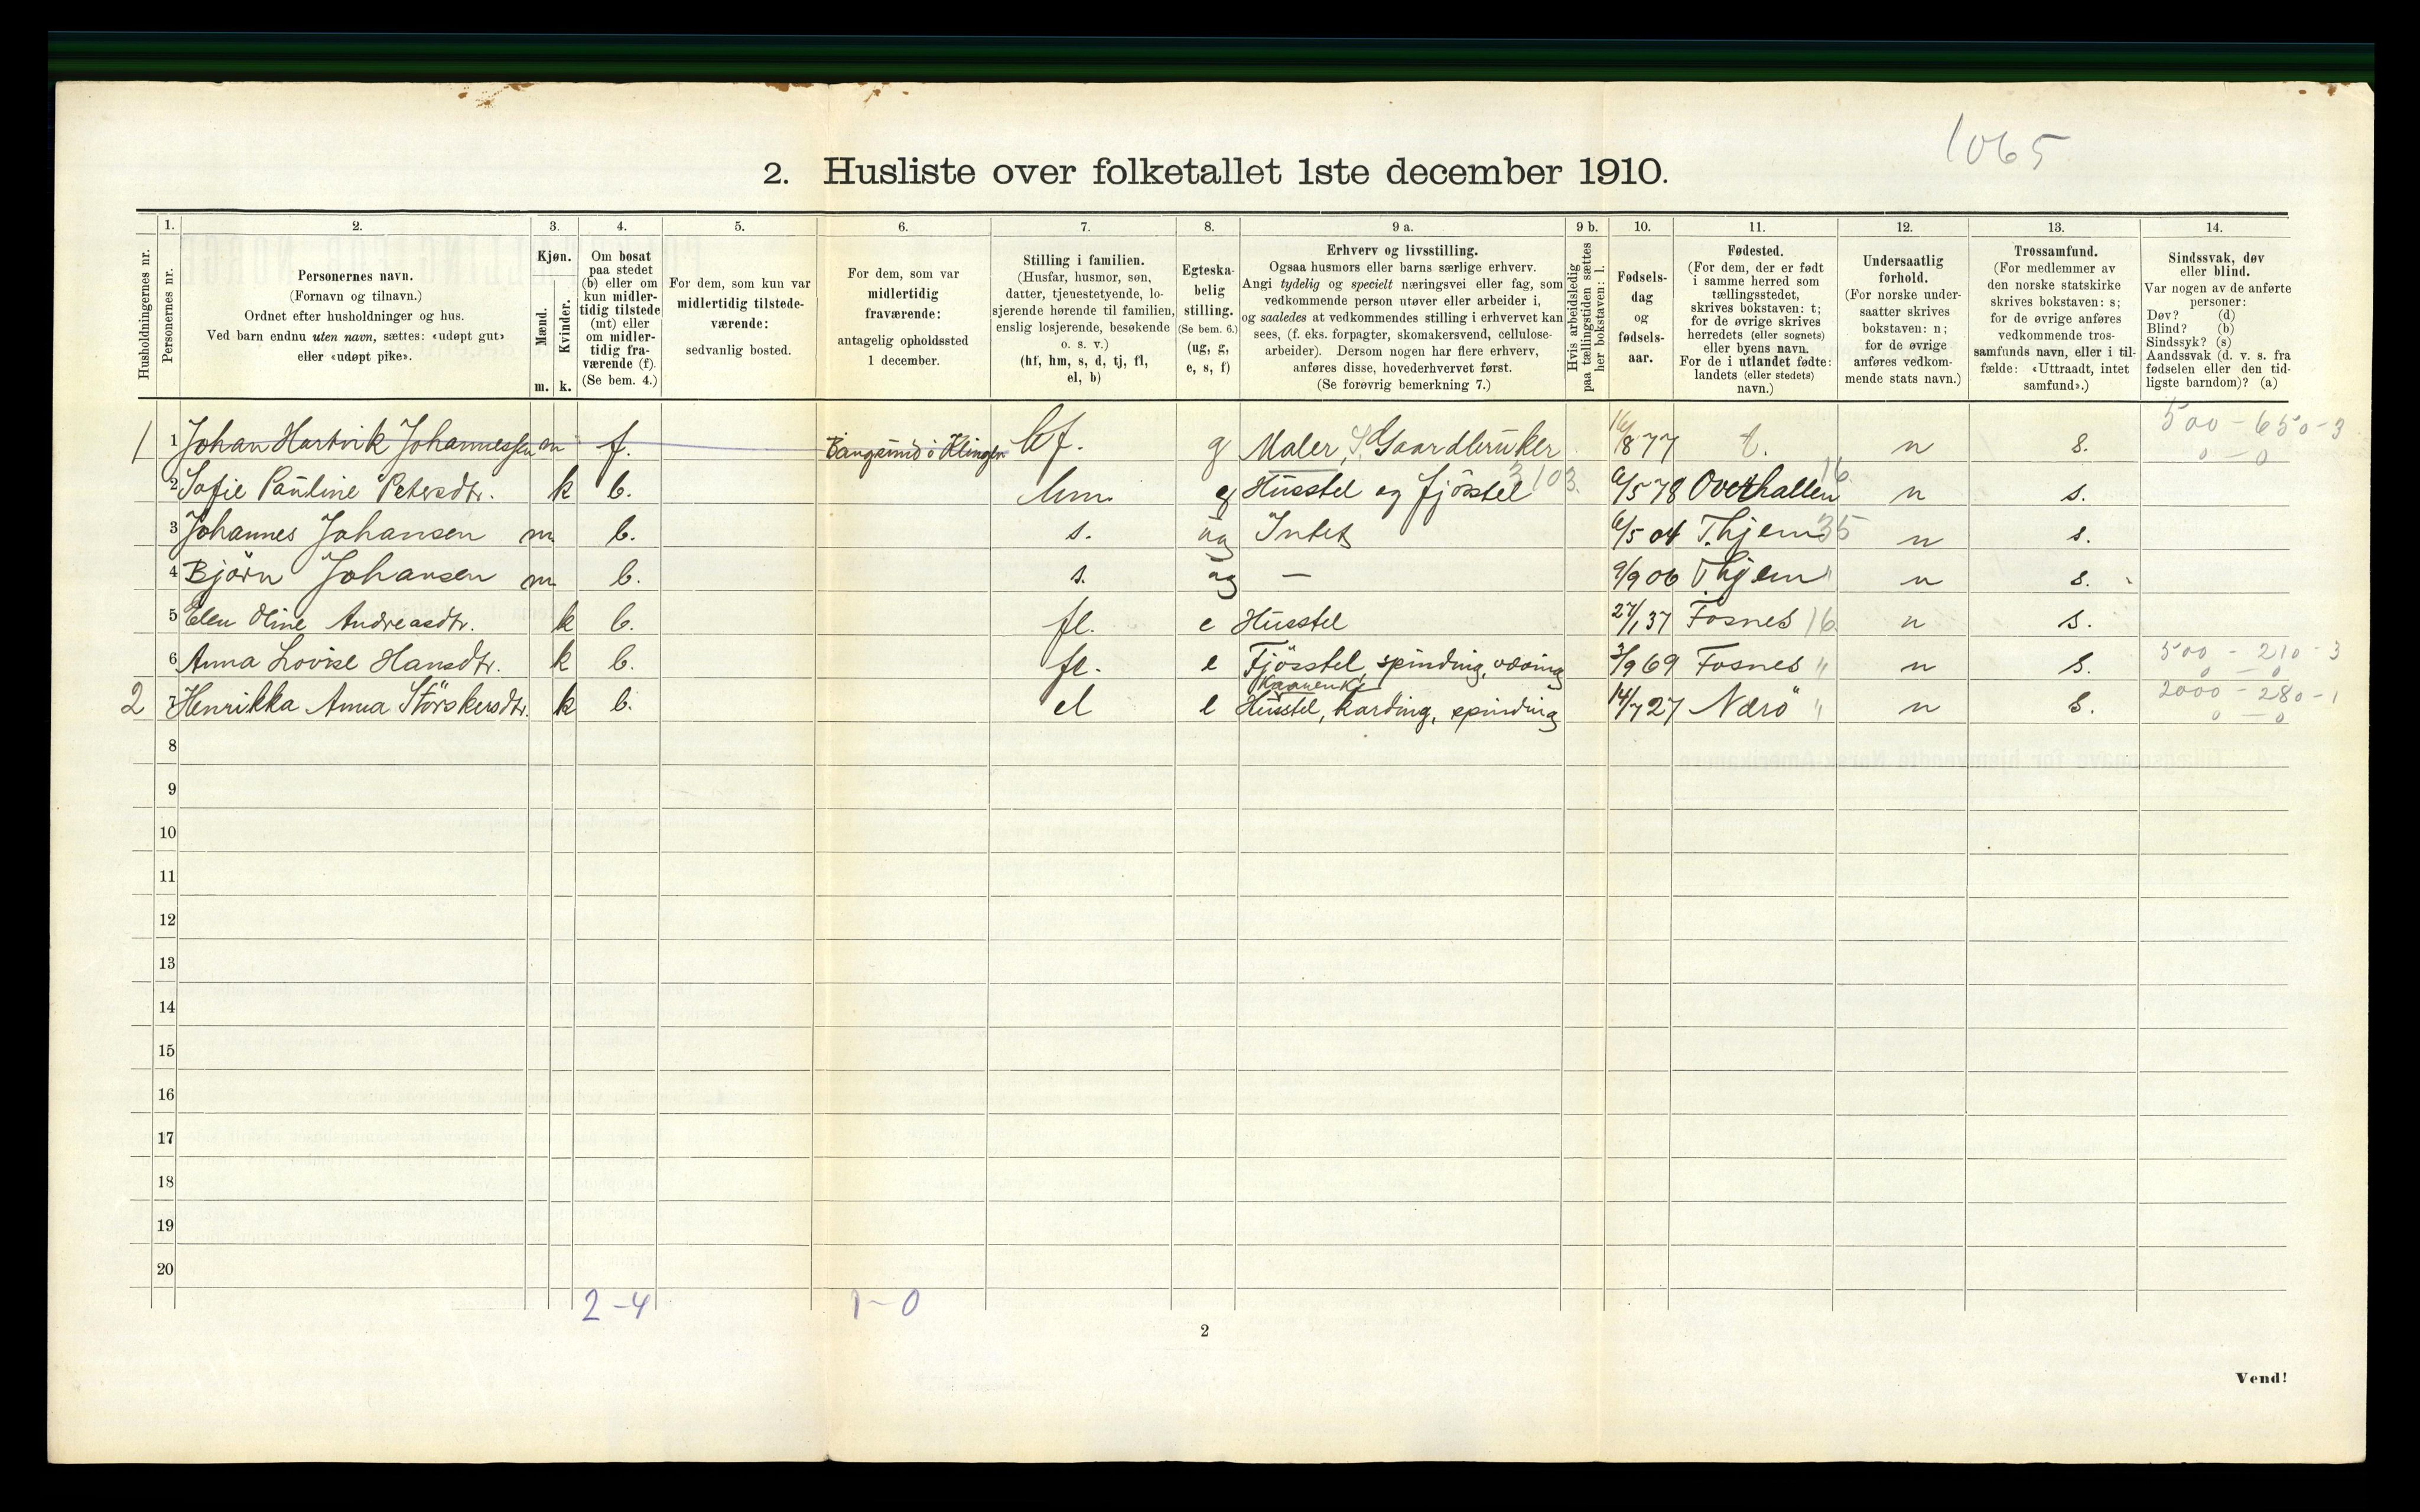 1065
2. Husliste over folketallet 1ste december 1910.
Husholdningernes nr.
1.
Personernes nr.
2.
Personernes navn.
(Fornavn og tilnavn.)
Ordnet efter husholdninger og hus.
Ved barn endnu uten navn, sættes: «udøpt gut»
eller «udøpt pike».
3.
Kjøn.
Mænd.
Kvinder.
m. k.
4.
Om bosat
paa stedet
(b) eller om
kun midler-
tidig tilstede
(mt) eller
om midler-
tidig fra-
værende (f).
(Se bem. 4.)
5.
For dem, som kun var
midlertidig tilstede-
værende:
sedvanlig bosted.
6.
For dem, som var
midlertidig
fraværende:
antagelig opholdssted
1 december.
7.
Stilling i familien.
(Husfar, husmor, søn,
datter, tjenestetyende, lo-
sjerende hørende til familien,
enslig losjerende, besøkende
o. s. v.)
(hf, hm, s, d, tj, fl,
el, b)
8.
Egteska-
belig
stilling.
(Se bem. 6.)
(ug, g,
e, s, f)
9 a.
Erhverv og livsstilling.
Ogsaa husmors eller barns særlige erhverv.
Angi tydelig og specielt næringsvei eller fag, som
vedkommende person utøver eller arbeider i,
og saaledes at vedkommendes stilling i erhvervet kan
sees, (f. eks. forpagter, skomakersvend, cellulose-
arbeider). Dersom nogen har flere erhverv,
anføres disse, hovederhvervet først.
(Se forøvrig bemerkning 7.)
9 b.
Hvis arbeidsledig
paa tællingstiden sættes
her bokstaven: l.
10.
Fødsels-
dag
og
fødsels-
aar.
11.
Fødested.
(For dem, der er født
i samme herred som
tællingsstedet,
skrives bokstaven: t;
for de øvrige skrives
herredets (eller sognets)
eller byens navn.
For de i utlandet fødte:
landets (eller stedets)
navn.)
12.
Undersaatlig
forhold.
(For norske under-
saatter skrives
bokstaven: n;
for de øvrige
anføres vedkom-
mende stats navn.)
13.
Trossamfund.
(For medlemmer av
den norske statskirke
skrives bokstaven: s;
for de øvrige anføres
vedkommende tros-
samfunds navn, eller i til-
fælde: «Uttraadt, intet
samfund».)
14.
Sindssvak, døv
eller blind.
Var nogen av de anførte
personer:
Døv? (d)
Blind? (b)
Sindssyk? (s)
Aandssvak (d. v. s. fra
fødselen eller den tid-
ligste barndom)? (a)
1 1 Johan Hartvik Johannessen m f. Bangsund i Klingen hf. g Maler, S Gaardbruker 16/8 77 t. n s. 500 - 650 - 3
0 - 0
2 Sofie Pauline Petersdtr. k b. hm. g Husstel og fjösstel 3103. 6/5 78 Overhallen 16 n s.
3 Johannes Johansen m b. s. ug Intet 6/5 04 T. hjem 35 n s.
4 Björn Johansen m b. s. ug — 9/9 06 T hjem " n s.
5 Elen Oline Andreasdtr. k b. fl. e Husstel 27/1 37 Fosnes 16 n s.
6 Anna Lovise Hansdtr. k b. fl. e Fjösstel, spinding, væving 3/9 69 Fosnes " n s. 500 - 210 - 3
0 - 0
2 7 Henrikka Anna Störskersdtr. k b. el e Husstel, karding, spinding 14/7 27 Nærö " n s. 2000 - 280 - 1
0 - 0
8
9
10
11
12
13
14
15
16
17
18
19
20
2-4 1-0
2
Vend!